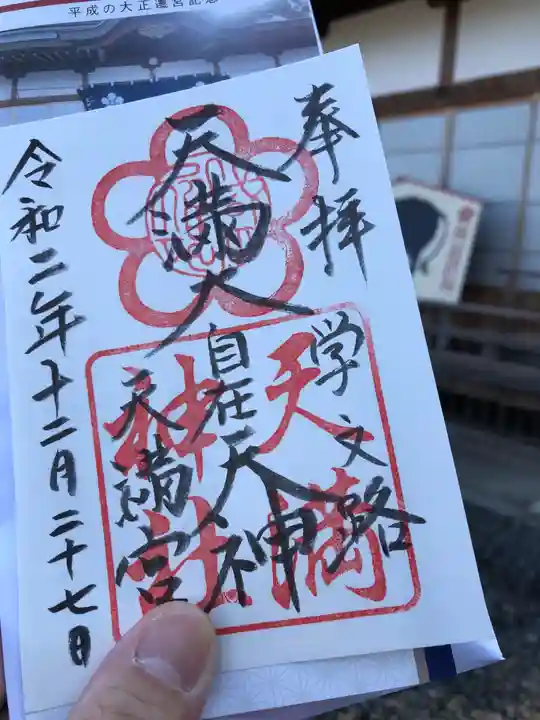 平成の大正遷宮記念
奉拝
学文路
天満大自在天神
天満宮
令和二年十二月二十七日
天満
神社